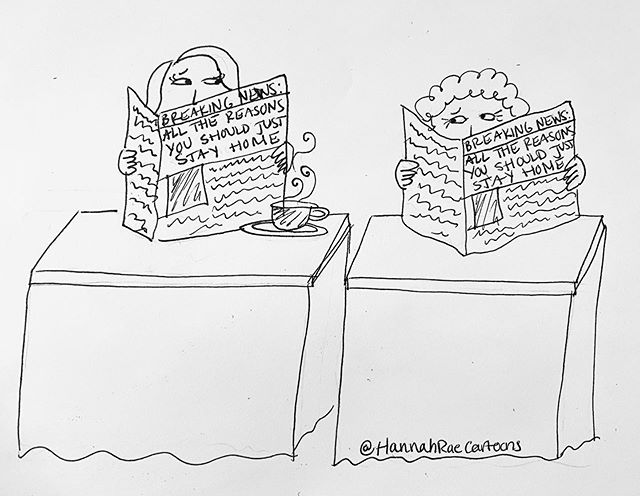 BREAKING NEWS:
ALL THE REASONS
YOU SHOULD JUST
STAY HOME
BREAKING NEWS:
ALL THE REASONS
YOU SHOULD JUST
STAY HOME
@HannahRaeCartoons